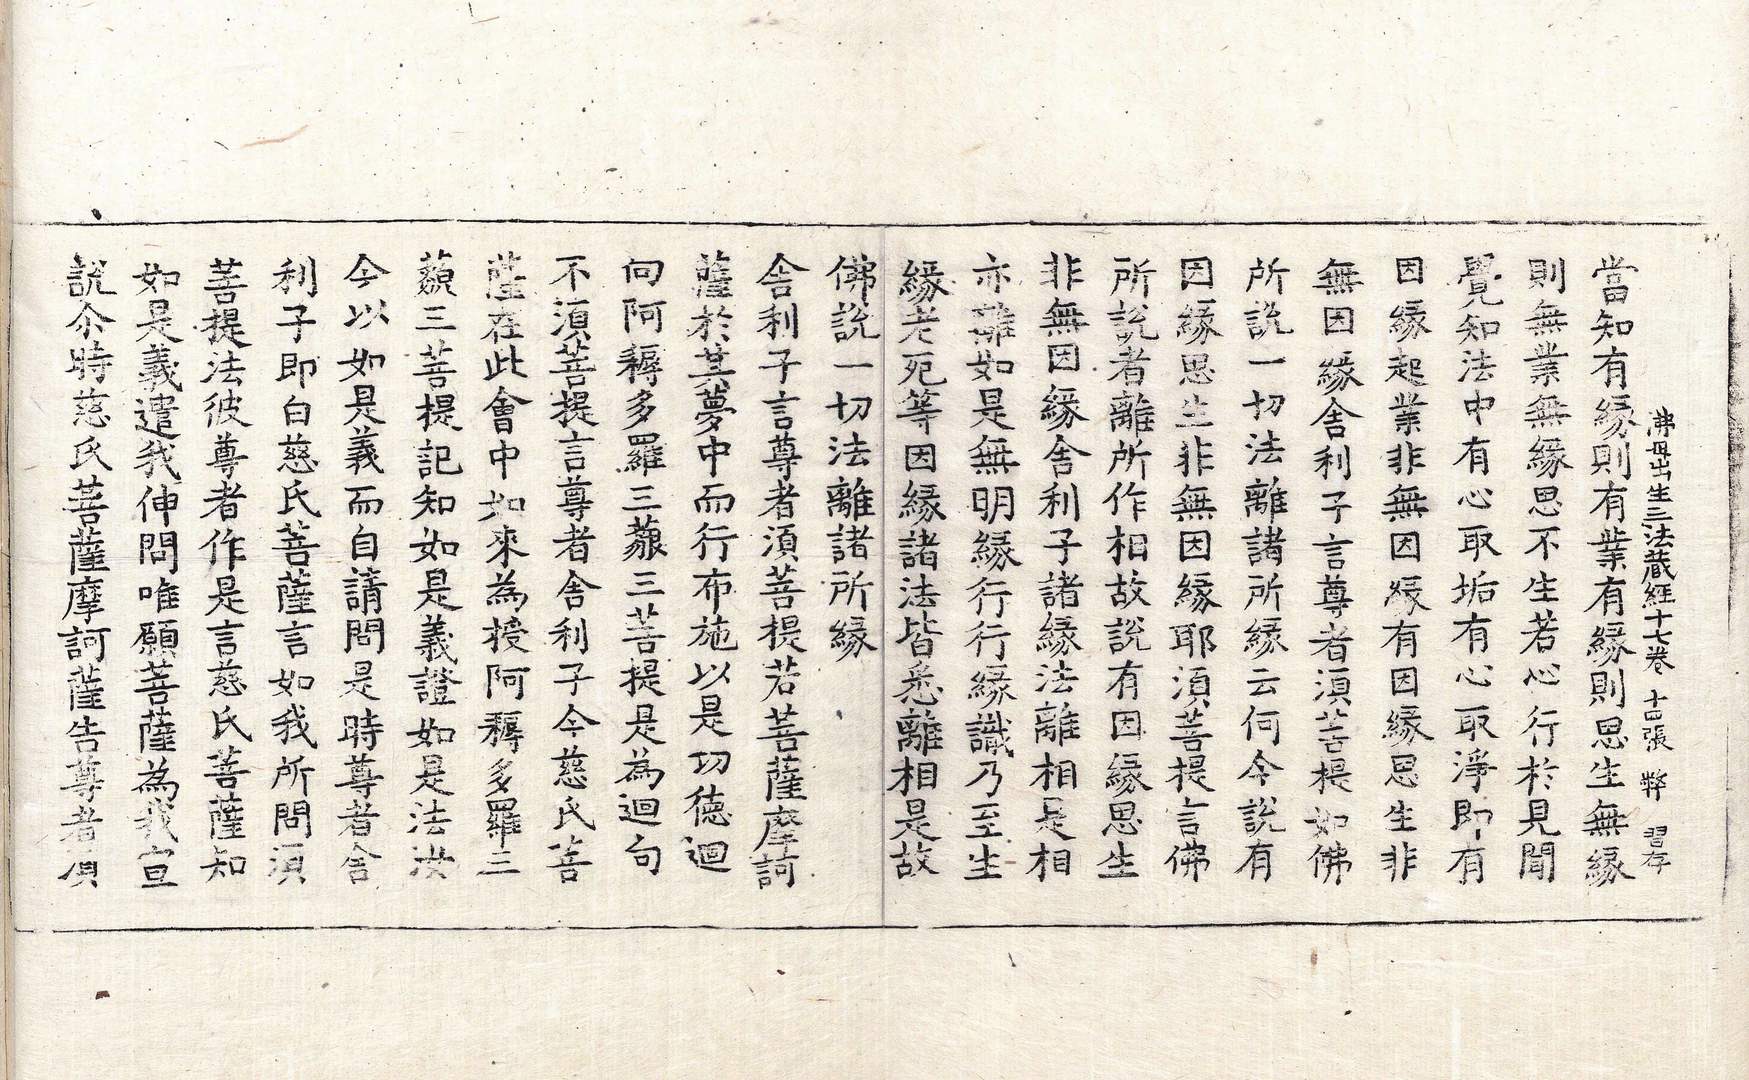 佛母出生三法藏經十七卷 十四張 弊 習存
當知有緣則有業有緣則思生無緣
則無業無緣思不生若心行於見聞
覺知法中有心取垢有心取淨即有
因緣起業非無因緣有因緣思生非
無因緣舍利子言尊者須菩提如佛
所說一切法離諸所緣云何今說有
因緣思生非無因緣耶須菩提言佛
所說者離所作相故說有因緣思生
非無因緣舍利子諸緣法離相是相
亦離如是無明緣行行緣識乃至生
緣老死等因緣諸法皆悉離相是故
佛說一切法離諸所緣
舍利子言尊者須菩提若菩薩摩訶
薩於其夢中而行布施以是功德迴
向阿耨多羅三藐三菩提是為迴向
不須菩提言尊者舍利子今慈氏菩
薩在此會中如來為授阿耨多羅三
藐三菩提記知如是義證如是法汝
今以如是義而自請問是時尊者舍
利子即白慈氏菩薩言如我所問須
菩提法彼尊者作是言慈氏菩薩知
如是義遣我伸問唯願菩薩為我宣
說尒時慈氏菩薩摩訶薩告尊者須